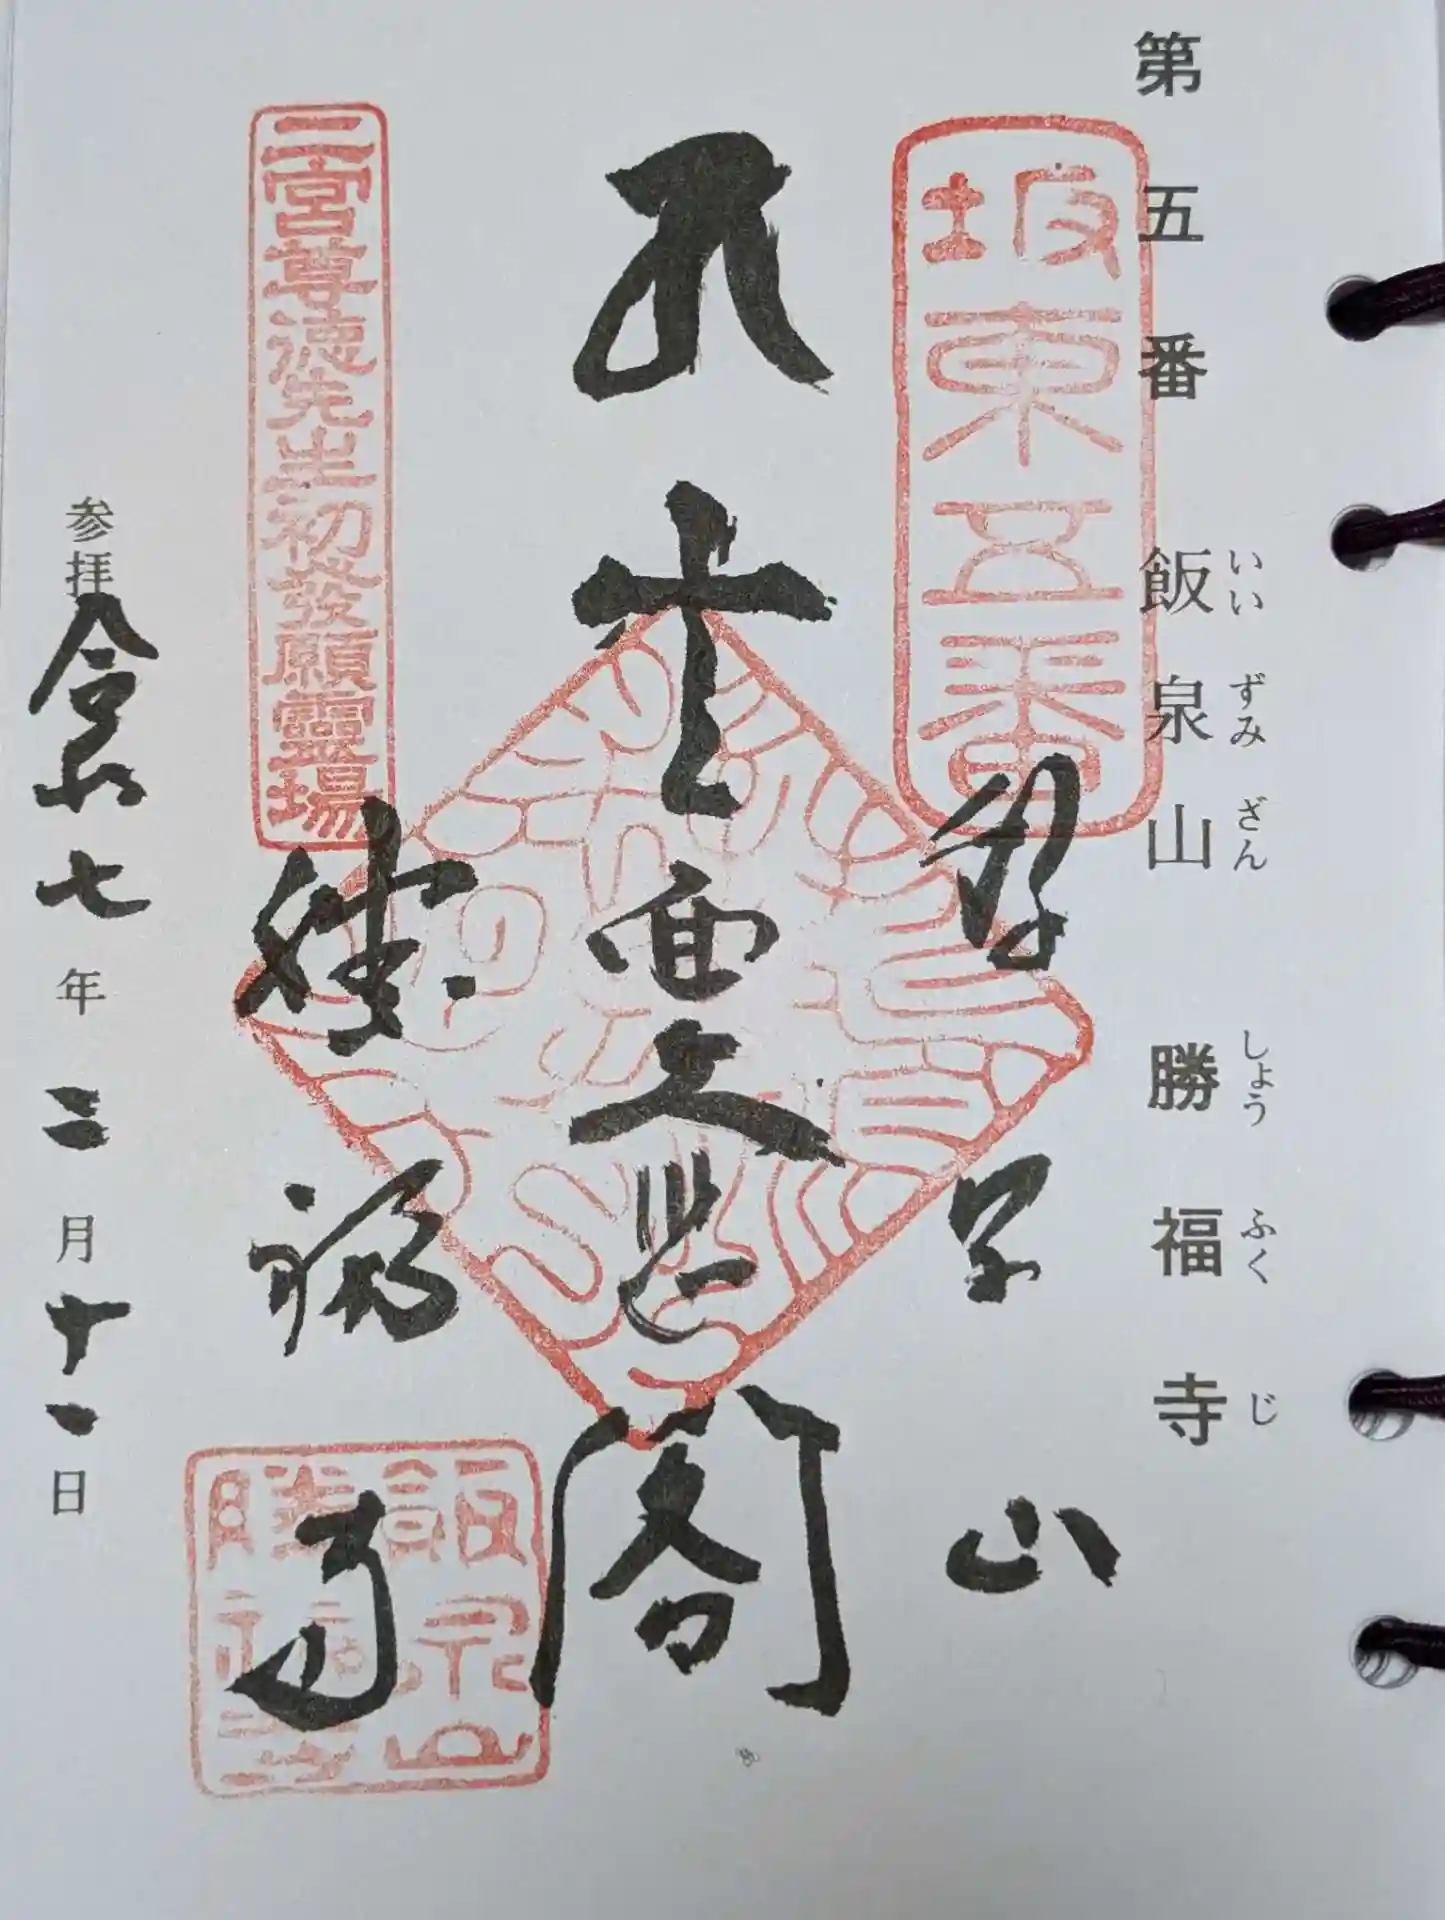 第五番 飯泉山 勝福寺
いいずみざん しょうふくじ
坂東五番
飯泉山
十一面大悲閣
二宮尊徳先生初發願靈場
勝福寺
飯泉山勝福寺
参拝 令和七年三月十一日